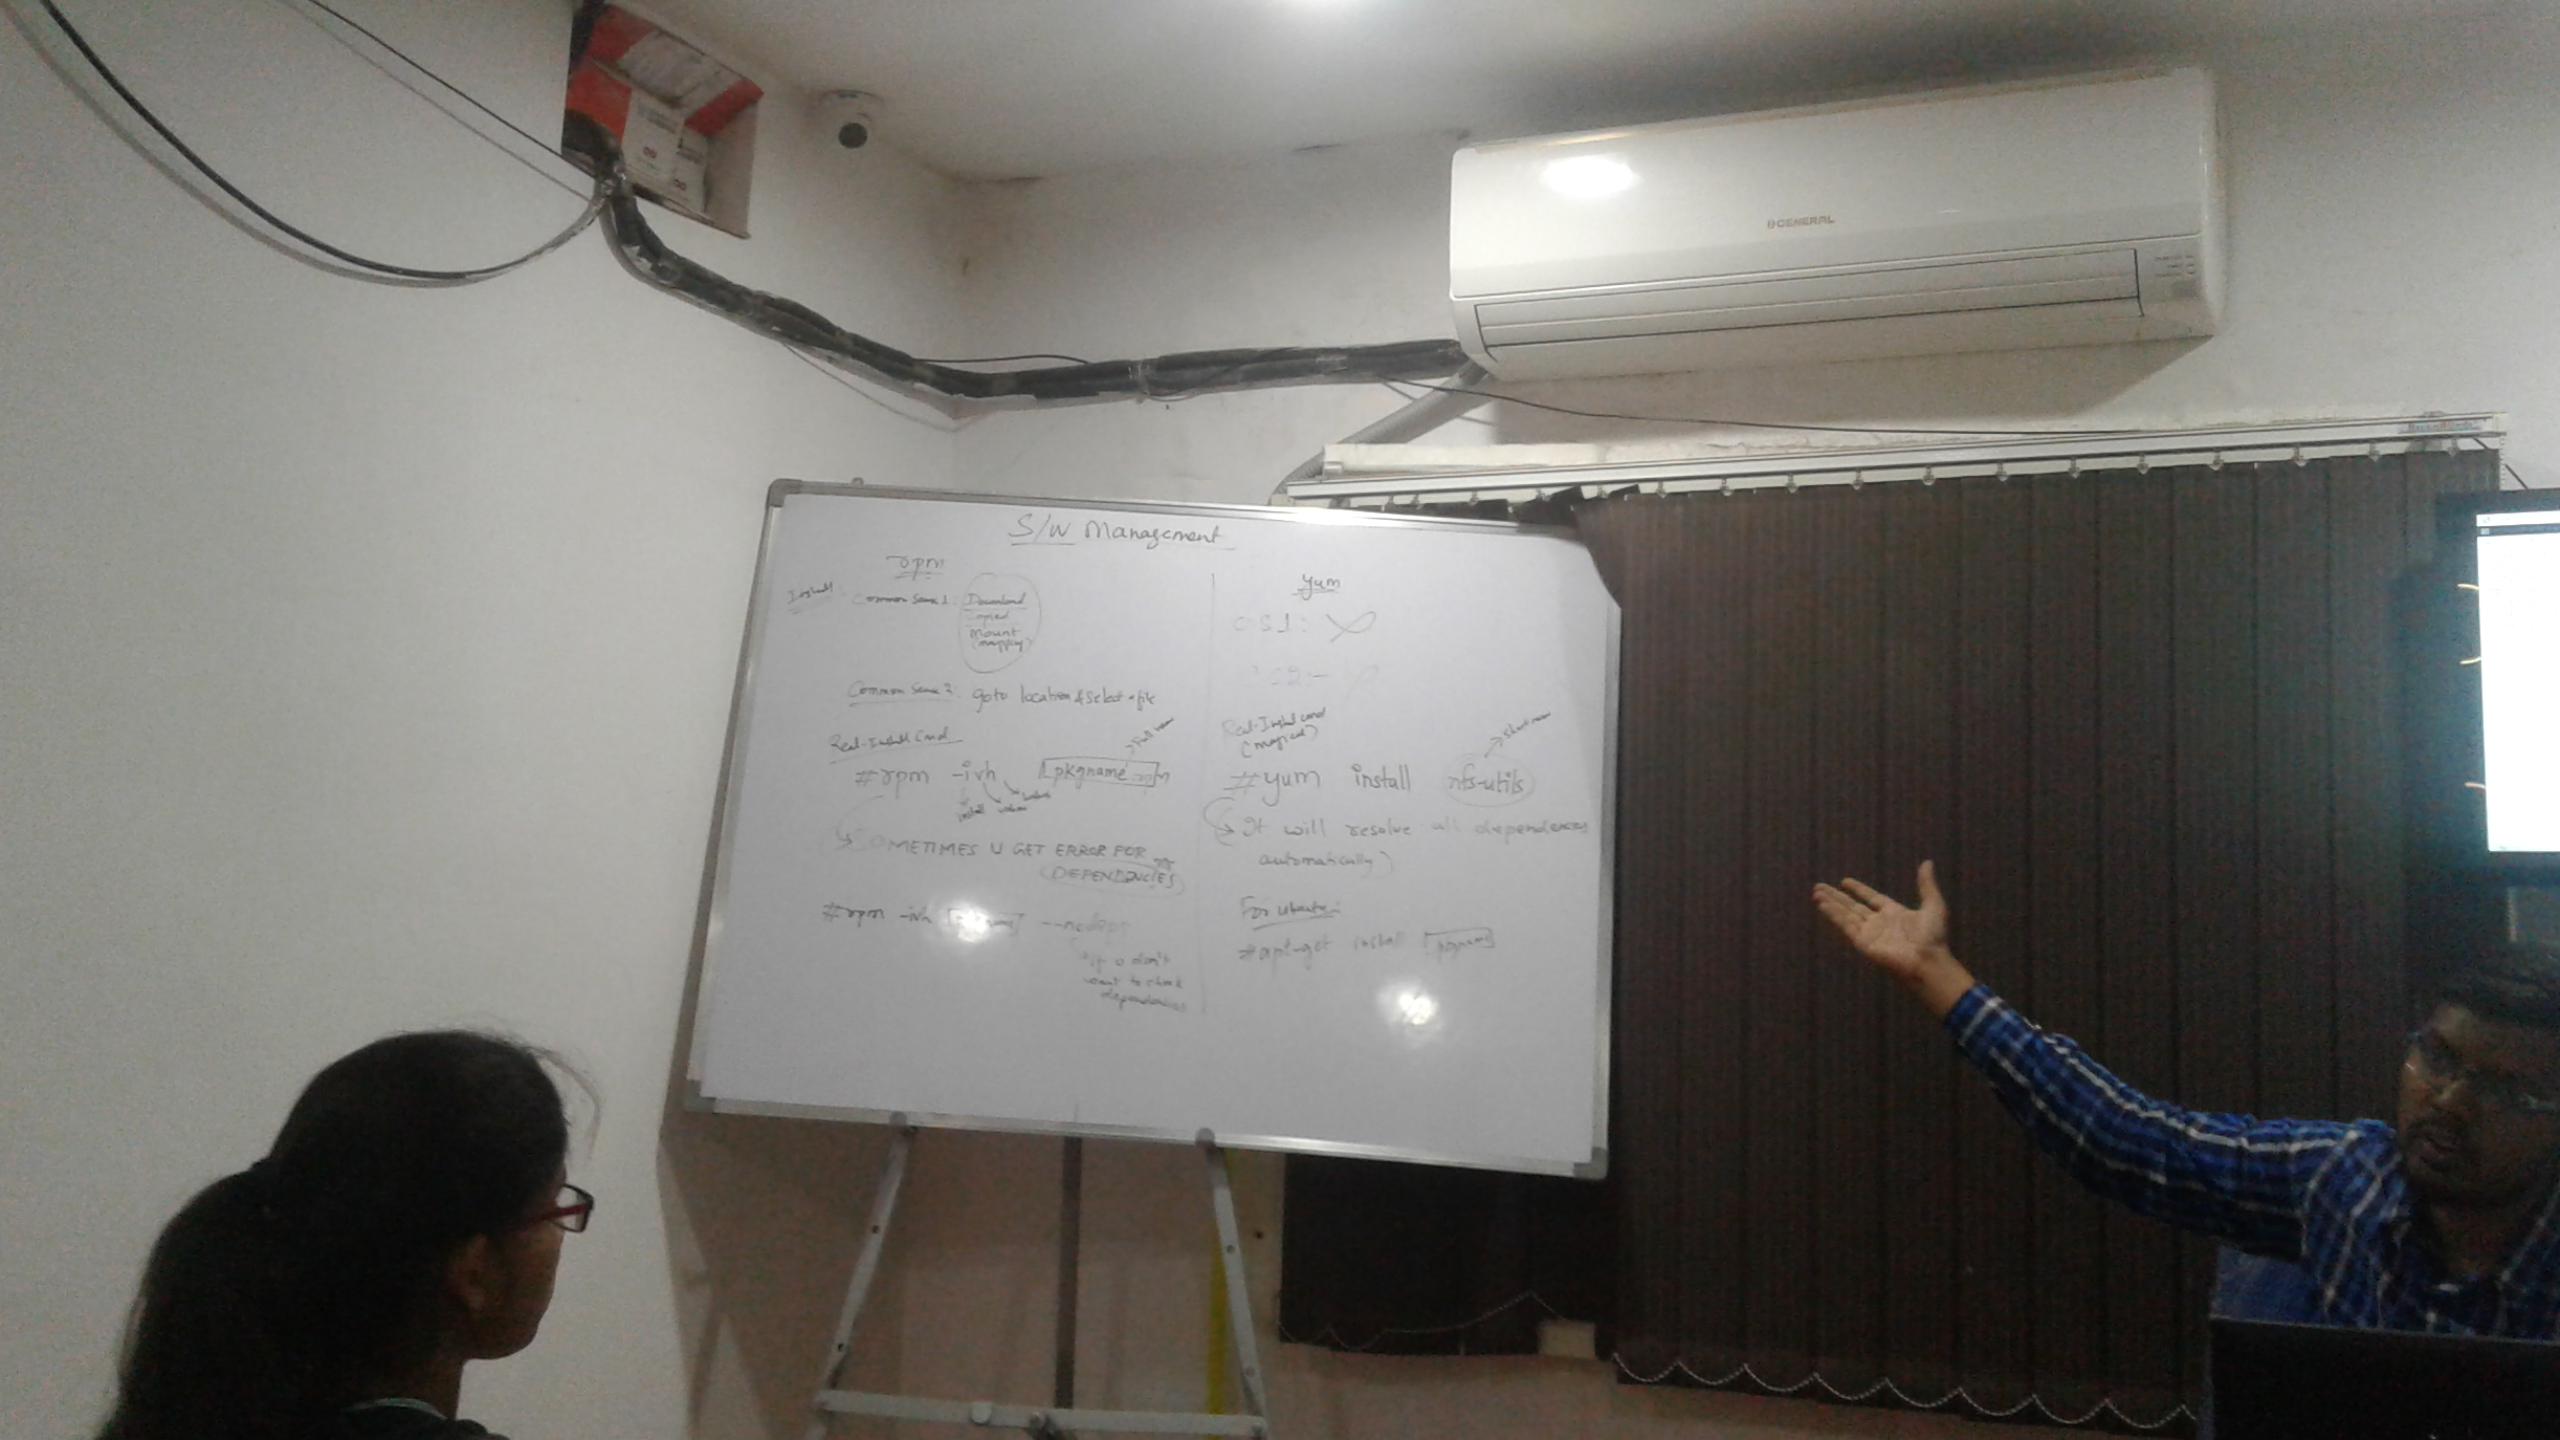 GENERAL
S/W Management
rpm
Install:
Common Sense 1: Download
Copied
Mount
(mapping)
Common Sense 2: goto location & select a file
Real-Install Cmd
→ Full name
#rpm -ivh [pkgname.rpm]
install
SOMETIMES U GET ERROR FOR
DEPENDENCIES
#rpm -ivh --nodeps
if u don't
want to check
dependencies
yum
CS1: X
CS2:-
Real-Install cmd
(magical)
→ Short name
#yum install nfs-utils
It will resolve all dependences
automatically)
For Ubuntu:
#apt-get install [pkgname]